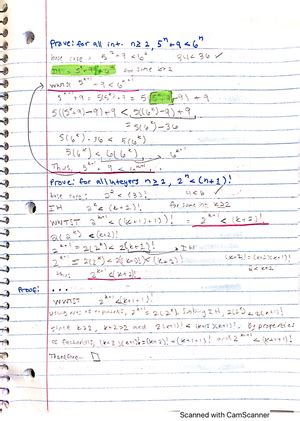 Prove: for all int. n ≥ 2, 5^n + 9 < 6^n
base case = 5^2 + 9 < 6^2 34 < 36 ✓
for some k ≥ 2
WNTS 5^(k+1) + 9 < 6^(k+1)
5^(k+1) + 9 = 5(5^k) + 9 = 5 -9) + 9
5((5^k + 9) - 9) + 9 < 5(6^k) - 9) + 9
= 5(6^k) - 36
5(6^k) - 36 < 5(6^k)
5(6^k) < 6(6^k) 6^(k+1)
Thus, 5^(k+1) + 9 < 6^(k+1)
Prove: for all integers n ≥ 2, 2^n < (n+1)!
base case: 2^2 < (3)! 4 < 6 ✓
IH 2^k < (k+1)! for some int k ≥ 2
WNTS 2^(k+1) < ((k+1)+1)! = 2^(k+1) < (k+2)!
2(2^k) < (k+2)!
2^(k+1) = 2(2^k) < 2(k+1)! IH
2^(k+1) = 2(2^k) < 2(k+1)! < (k+2)! (k+2)! = (k+2)(k+1)!
2 < k+2
thus, 2^(k+1) < (k+2)!
Proof: ...
WNTS 2^(k+1) < (k+1+1)!
2^(k+1) = 2(2^k). Using IH, 2(2^k) < 2(k+1)!
Since k ≥ 2, k+2 ≥ 2 and 2(k+1)! < (k+2)(k+1)!. By properties
of factorials, (k+2)(k+1)! = (k+2)! = (k+1+1)! and 2^(k+1) < (k+1+1)!
Therefore... □
Scanned with CamScanner